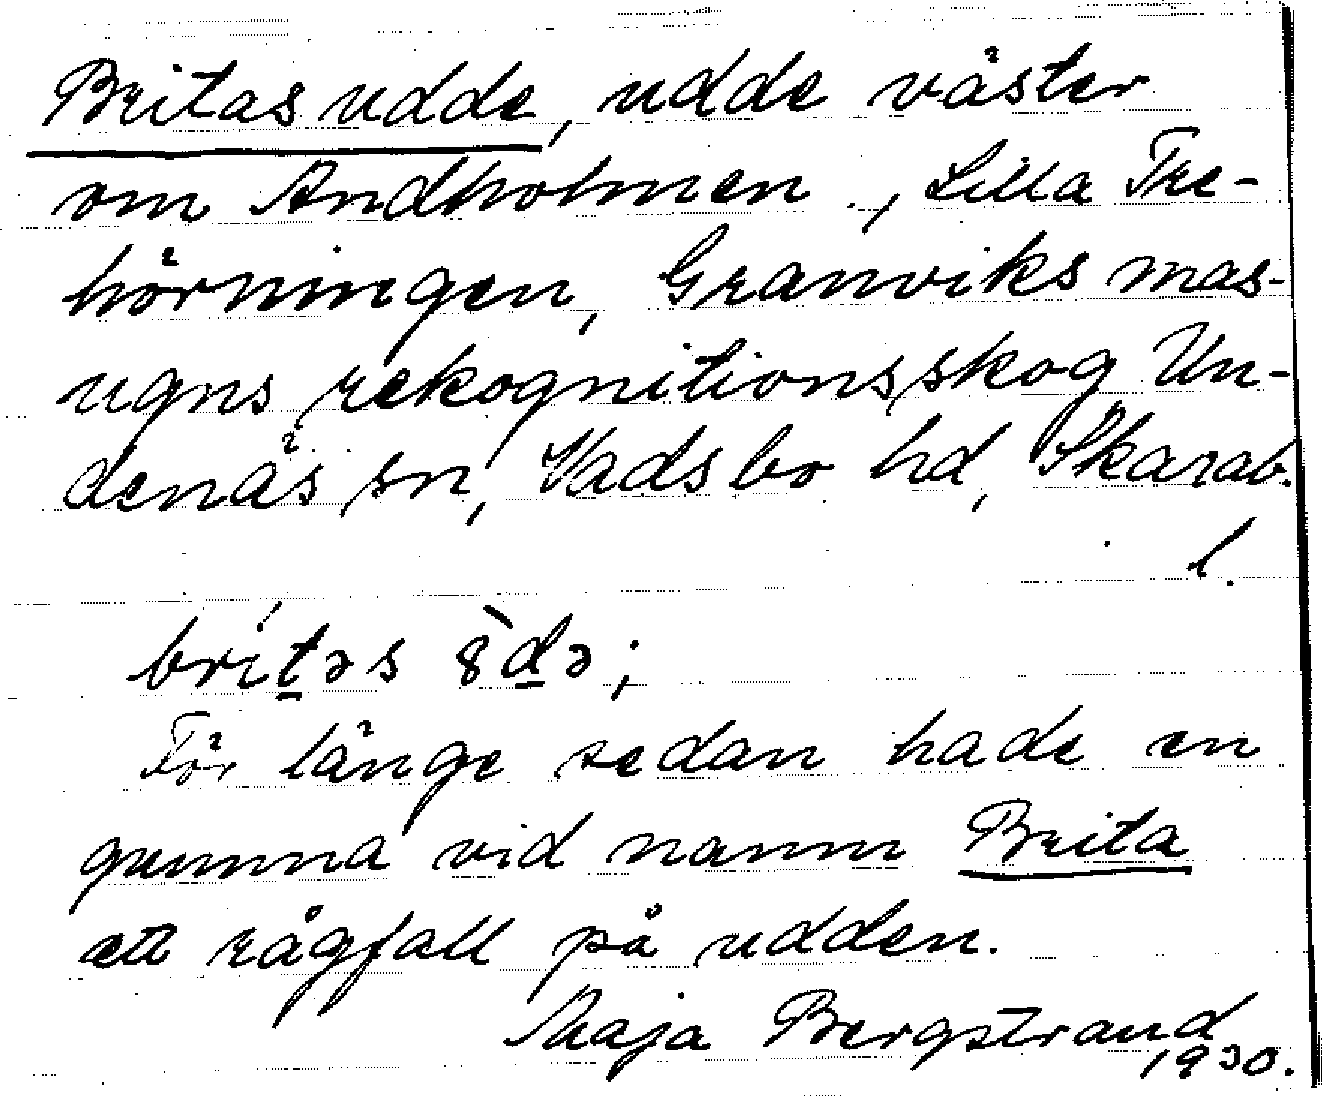 Britas udde, udde väster
om Andholmen, Lilla Tre-
hörningen, Granviks mas-
ugns rekognitionsskog Un-
denäs sn, Vadsbo hd, Skarab.
l.
britəs 8̀də;
För länge sedan hade en
gumma vid namn Brita
ett rågfall på udden.
Maja Bergstrand
1930.